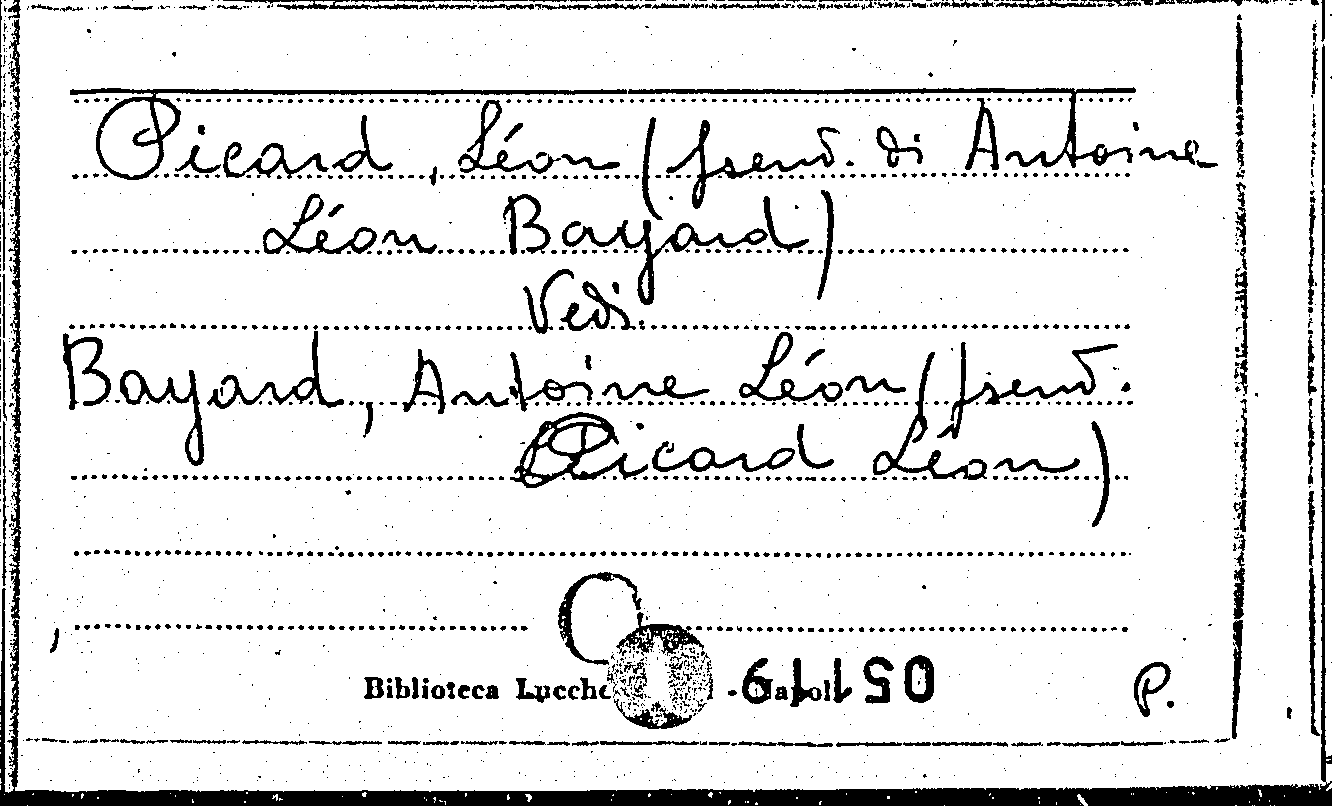 Picard, Léon (pseud. di Antoine
Léon Bayard)
Vedi
Bayard, Antoine Léon (pseud.
Picard Léon)
C
Biblioteca
051119
P.